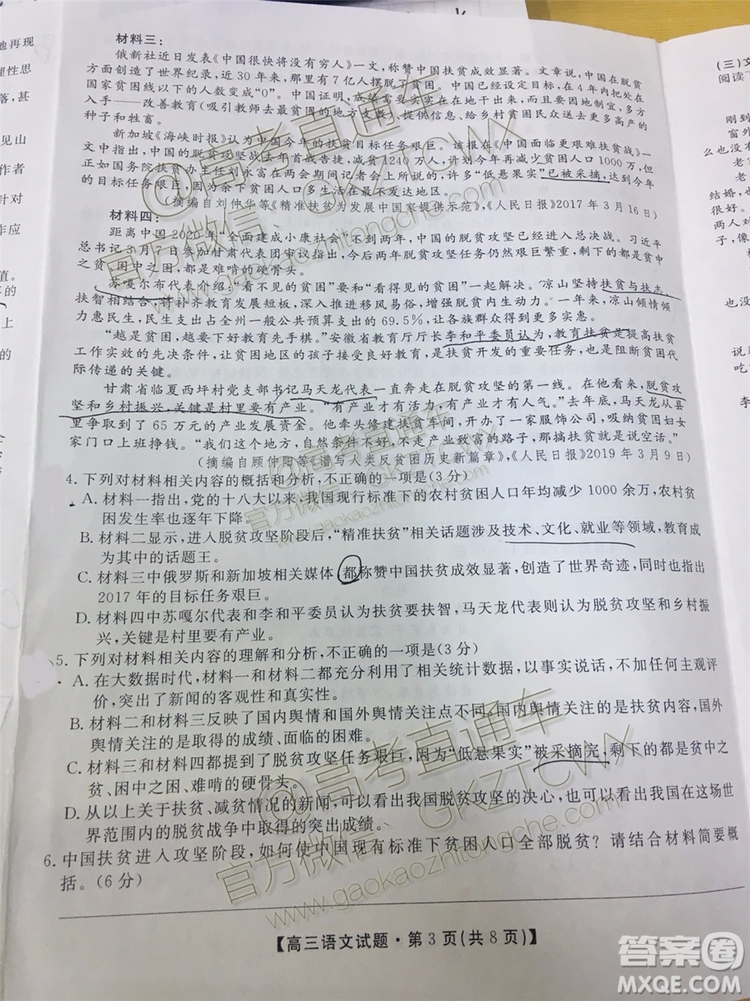 k
他再现
理性思
落，甚
见山
作者
针对
作应
值。
享的
材料三：
俄新社近日发表《中国很快将没有穷人》一文，称赞中国扶贫成效显著。文章说，中国在脱贫
方面创造了世界纪录，近30年来，有7亿人摆脱了贫困，中国已经设定目标，在4年内将把在
国家贫困线以下的人数变为“0”。中国证明，成功战胜贫困实实在在地干出来的，而且要从小处
入手——改善教育(吸引教师去最贫困的地方支教)，给乡村贫困民众送去更多高产的
种子和牲畜。
新加坡《海峡时报》认为中国的目标任务艰巨。该报在《中国面临更艰难扶贫战》一文
中指出，中国的脱贫攻坚战已告捷，减贫1240万人，今年再减少贫困人口1000万，但
正如国务院扶贫办主任刘永富在两会期间记者会上所说，“低悬果实”已被采摘，2017年
的目标任务艰巨，因为贫困人口多生活在最不发达地区。
(摘编自刘仲华等《精准扶贫为发展中国家提供示范》，《人民日报》2017年3月16日)
材料四：
距离中国2020年“全面建成小康社会”不到两年，中国的脱贫攻坚已经进入总决战。习近平
总书记3月7日参加甘肃代表团审议时强调，今后两年脱贫攻坚任务仍然艰巨繁重，剩下的都是贫中
之贫、困中之困，都是难啃的硬骨头。
苏嘎尔布代表介绍，“看不见的贫困”要和“看得见的贫困”一起解决。凉山坚持扶贫与扶志
扶智相结合，将补齐教育短板，增加技能培训，推进移风易俗，增强脱贫内生动力。一年来，凉山倾情倾
力惠民生，民生支出占全州一般公共预算支出的69.5%，让各族群众得到更多实惠。
“越是贫困，越要下好教育先手棋。”安徽省教育厅厅长李和平委员认为，教育扶贫是提高扶贫
工作实效的先决条件，让贫困地区的孩子接受良好教育，是扶贫开发的重要任务，也是阻断贫困代
际传递的关键。
甘肃省临夏西坪村党支部书记马天龙代表一直奔走在脱贫攻坚的第一线。在他看来，脱贫攻
坚和乡村振兴，关键是村里要有产业。“有产业才有活力，有产业才有人气。”去年底，马天龙从县
里争取到了65万元的产业发展资金。他牵头修建扶贫车间，开办了一家服饰公司，吸纳贫困妇女
家门口上班挣钱。“我们如果不为村里找到产业致富的路子，那扶贫就是说空话。”
(摘编自顾仲阳等《谱写人类反贫困历史新篇章》，《人民日报》2019年3月9日)
4.下列对材料相关内容的概括和分析，不正确的一项是(3分)
A.材料一指出，党的十八大以来，我国现行标准下的农村贫困人口年均减少1000余万，农村贫
困发生率也逐年下降。
B.材料二显示，进入脱贫攻坚阶段后，“精准扶贫”相关话题涉及技术、文化、就业等领域，教育成
为其中的话题王。
C.材料三中俄罗斯和新加坡相关媒体都称赞中国扶贫成效显著，创造了世界奇迹，同时也指出
2017年的目标任务艰巨。
D.材料四中苏嘎尔代表和李和平委员认为扶贫要扶智，马天龙代表则认为脱贫攻坚和乡村振
兴，关键是村里要有产业。
5.下列对材料相关内容的理解和分析，不正确的一项是(3分)
A.在大数据时代，材料一和材料二都充分利用了相关统计数据，以事实说话，没有任何主观评
价，突出了新闻的客观性和真实性。
B.材料二和材料三反映了国内舆情和国外舆情关注点不同，国内舆情关注的是扶贫内容，国外
舆情关注的是取得的成绩、面临的困难。
C.材料三和材料四都提到了脱贫攻坚任务艰巨，因为“低悬果实”被采摘完，剩下的都是贫中之
贫、困中之困、难啃的硬骨头。
D.从以上关于扶贫、减贫情况的新闻，可以看出我国脱贫攻坚的决心，也可以看出我国在这场世
界范围内的脱贫战争中取得的突出成绩。
6.中国扶贫进入攻坚阶段，如何使中国现有标准下贫困人口全部脱贫？请结合材料简要概
括。(6分)
【高三语文试题·第3页(共8页)】
(三)文
阅读
刚到
么也没有
老
结婚，
两人
老
说
吃
@高考直通车
官方微信：GKZTCWX
www.gaokaozhitongche.com
答案圈
MXQE.COM